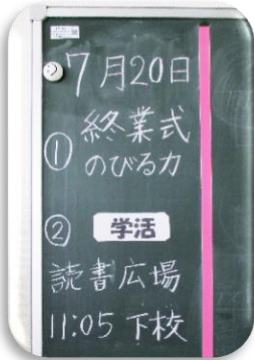 7月20日
① 終業式
のびる力
② 学活
読書広場
11:05 下校